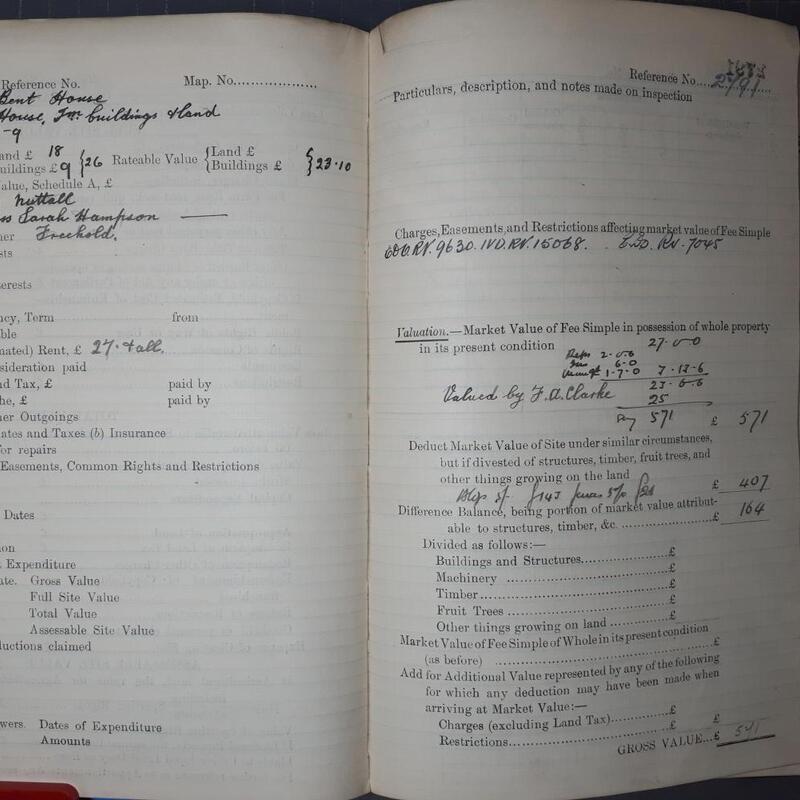 Reference No. Map. No..................
Bent House
House, Frm buildings & land
-9
and £ 18
uildings £ 9 } 26 Rateable Value { Land £
{ Buildings £ } 23.10
Value, Schedule A, £
Nuttall
ss Sarah Hampson
ner Freehold.
sts
terests
ncy, Term from
ble
mated) Rent, £ 27. & all.
sideration paid
nd Tax, £ paid by
he, £ paid by
her Outgoings
ates and Taxes (b) Insurance
for repairs
Easements, Common Rights and Restrictions
Dates
ion
Expenditure
ate. Gross Value
Full Site Value
Total Value
Assessable Site Value
ductions claimed
wers. Dates of Expenditure
Amounts
Reference No....
Particulars, description, and notes made on inspection
Charges, Easements, and Restrictions affecting market value of Fee Simple
RV. 9630. IVD. RV. 15068. RV. 7045
Valuation.—Market Value of Fee Simple in possession of whole property
in its present condition 27-0-0
2-0-0
6-0
1-7-0
Valued by F.A. Clarke
25
571 £ 571
Deduct Market Value of Site under similar circumstances,
but if divested of structures, timber, fruit trees, and
other things growing on the land £ 407
Difference Balance, being portion of market value attribut-
able to structures, timber, &c. ........................£ 164
Divided as follows:—
Buildings and Structures.....................£
Machinery ...............................£
Timber.....................................£
Fruit Trees ................................£
Other things growing on land .............£
Market Value of Fee Simple of Whole in its present condition
(as before) .......................................£
Add for Additional Value represented by any of the following
for which any deduction may have been made when
arriving at Market Value:—
Charges (excluding Land Tax)............£
Restrictions..............................£ £
GROSS VALUE...£